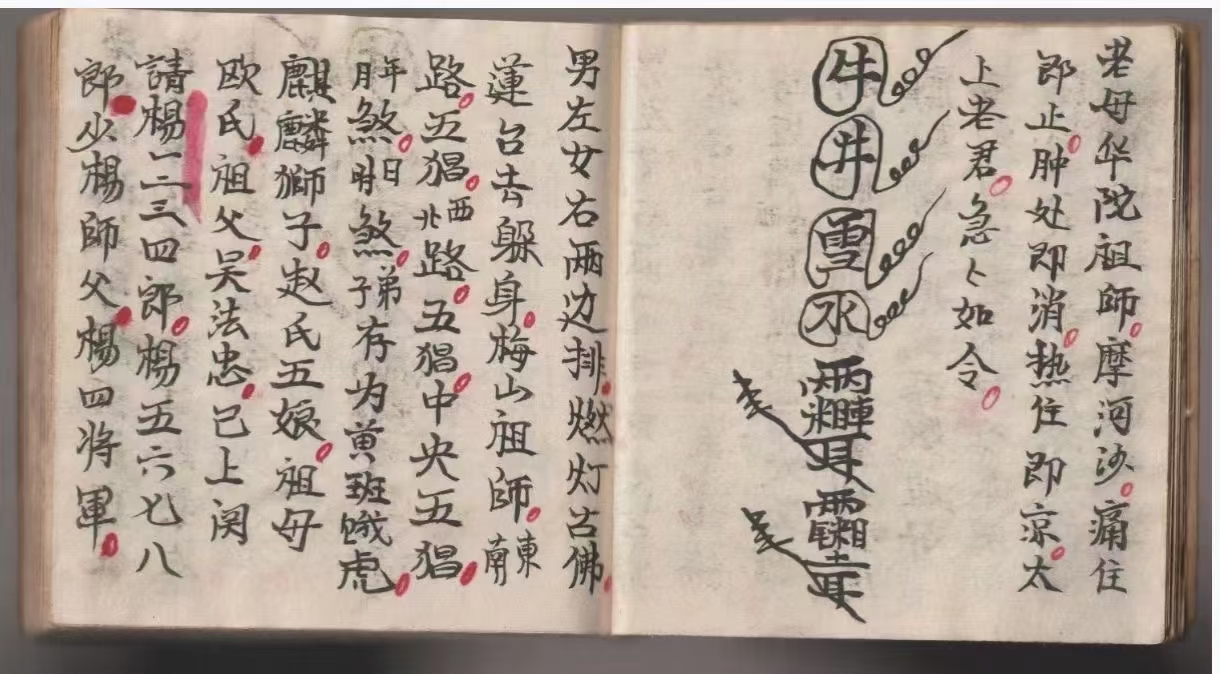 老母华陀祖師摩河沙痛住
即止肿处即消热住即凉太
上老君急々如令
牛
井
雪
水
男左女右兩边排燃灯古佛
蓮台去躲身梅山祖師東南
路五猖西北路五猖中央五猖
年月煞日时煞弟子存为黄班餓虎
麒麟獅子赵氏五娘祖母
欧氏祖父吴法忠已上関
請楊二三四郎楊五六七八
郎少楊師父楊四将軍